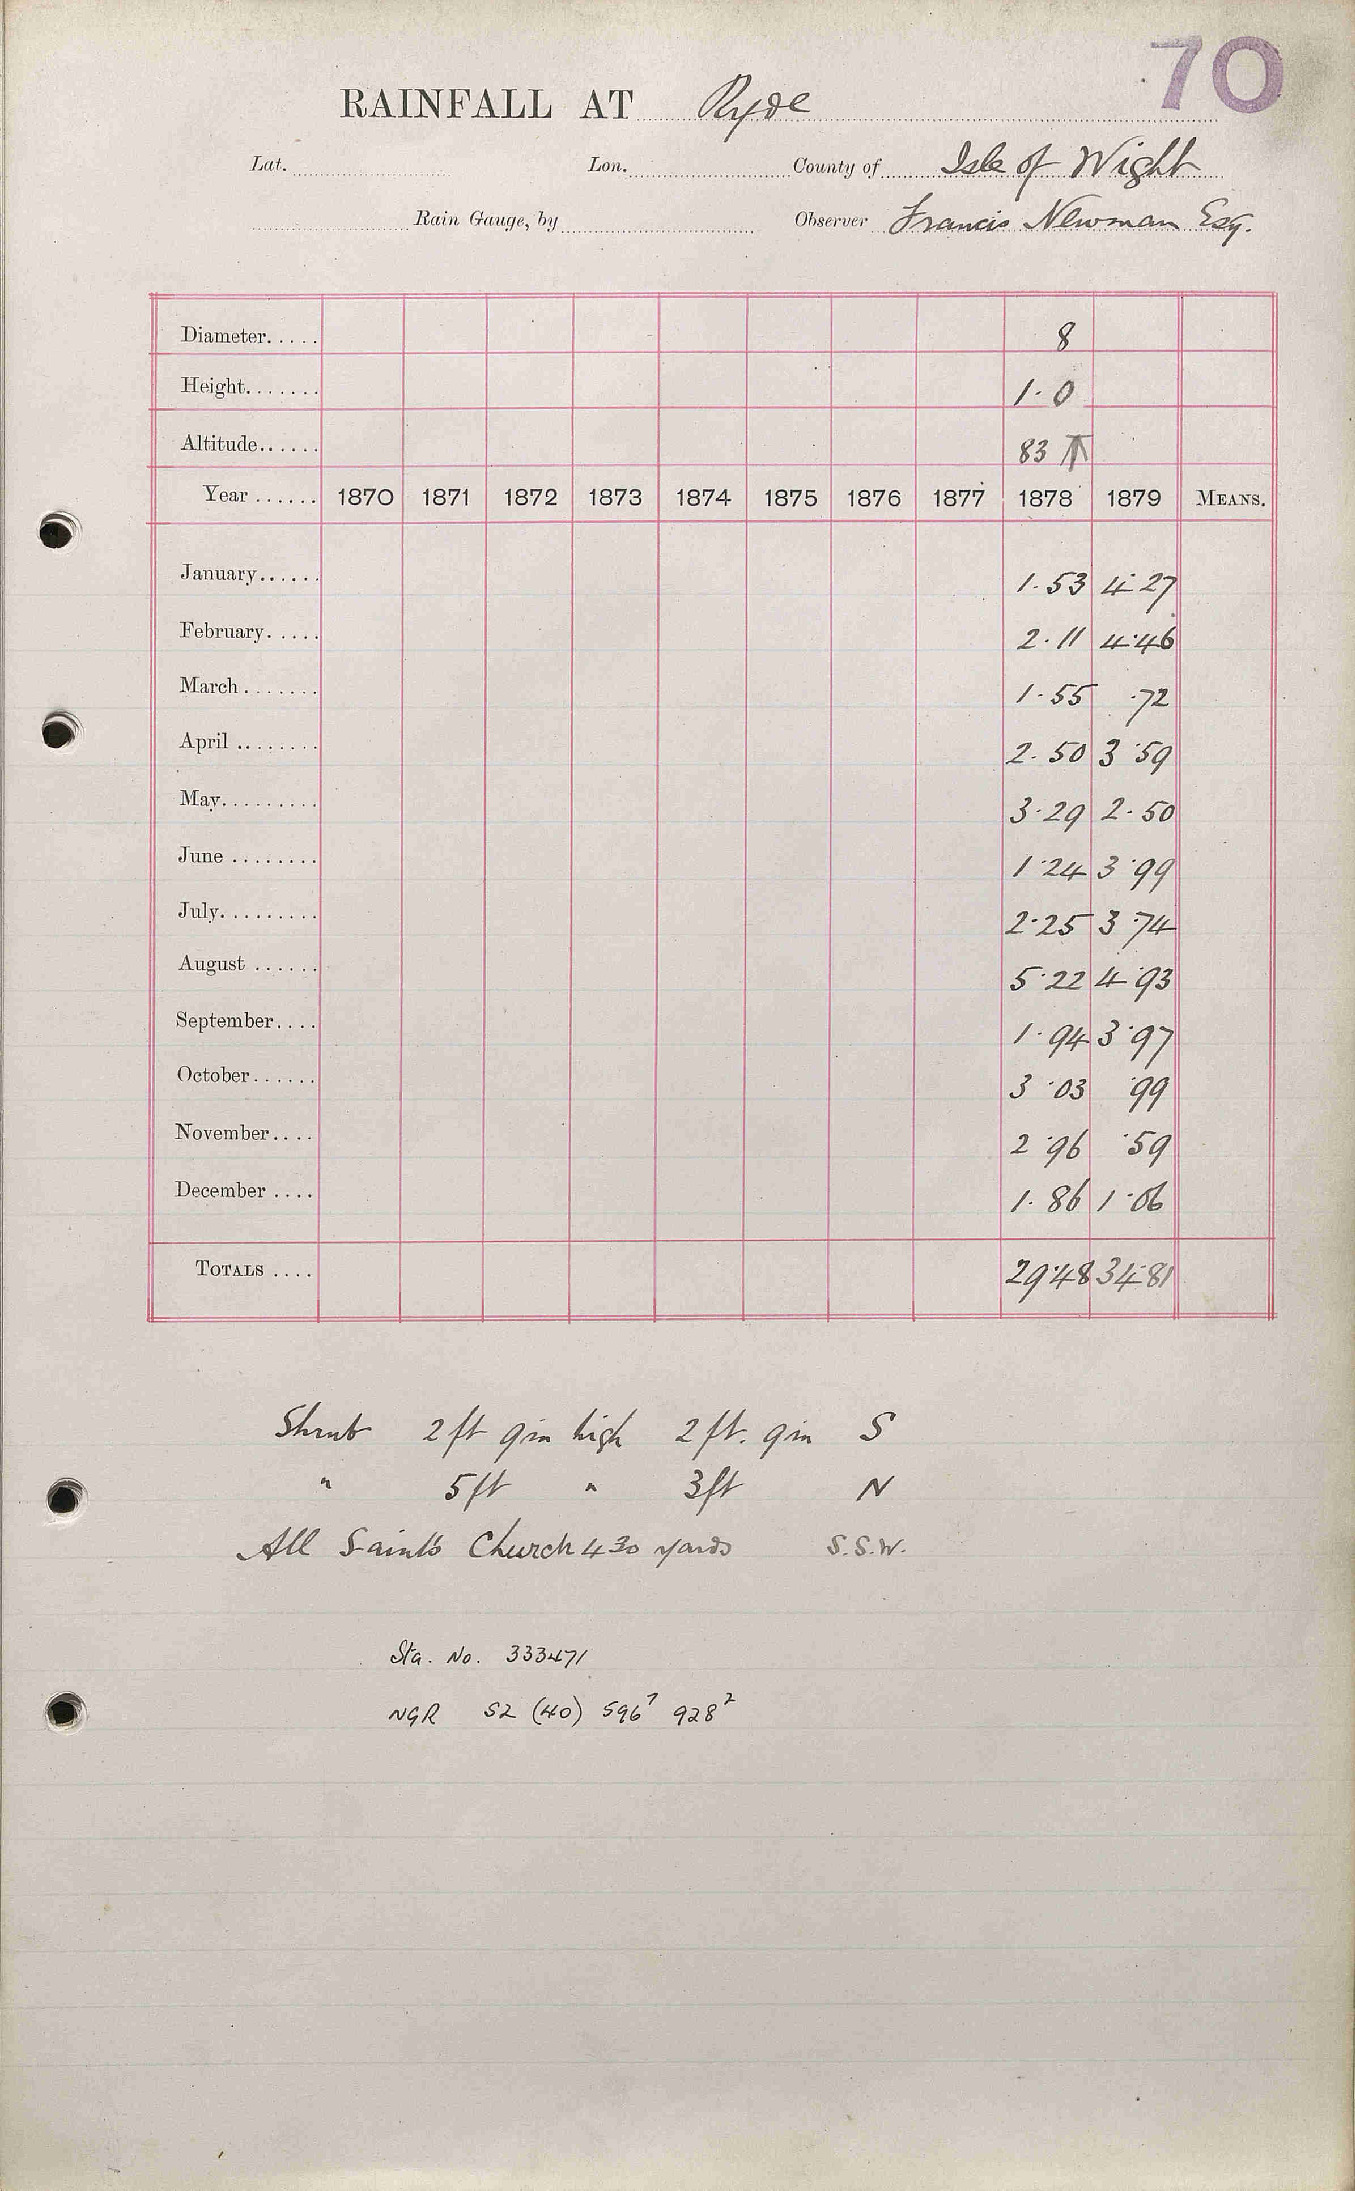 70
RAINFALL AT Ryde
Lat. Lon. County of Isle of Wight
Rain Gauge, by Observer Francis Newman Esq.
Diameter..... 8
Height....... 1.0
Altitude...... 83
Year ...... 1870 1871 1872 1873 1874 1875 1876 1877 1878 1879 MEANS.
January...... 1.53 4.27
February..... 2.11 4.46
March....... 1.55 .72
April ........ 2.50 3.59
May......... 3.29 2.50
June ........ 1.24 3.99
July......... 2.25 3.74
August ...... 5.22 4.93
September.... 1.94 3.97
October...... 3.03 .99
November.... 2.96 .59
December .... 1.86 1.06
TOTALS .... 29.48 34.81
Shrub 2 ft 9in high 2 ft. 9in S
" 5ft " 3ft N
All Saints Church 430 yards S.S.W.
Sta. No. 333471
NGR SZ (40) 596⁷ 928²